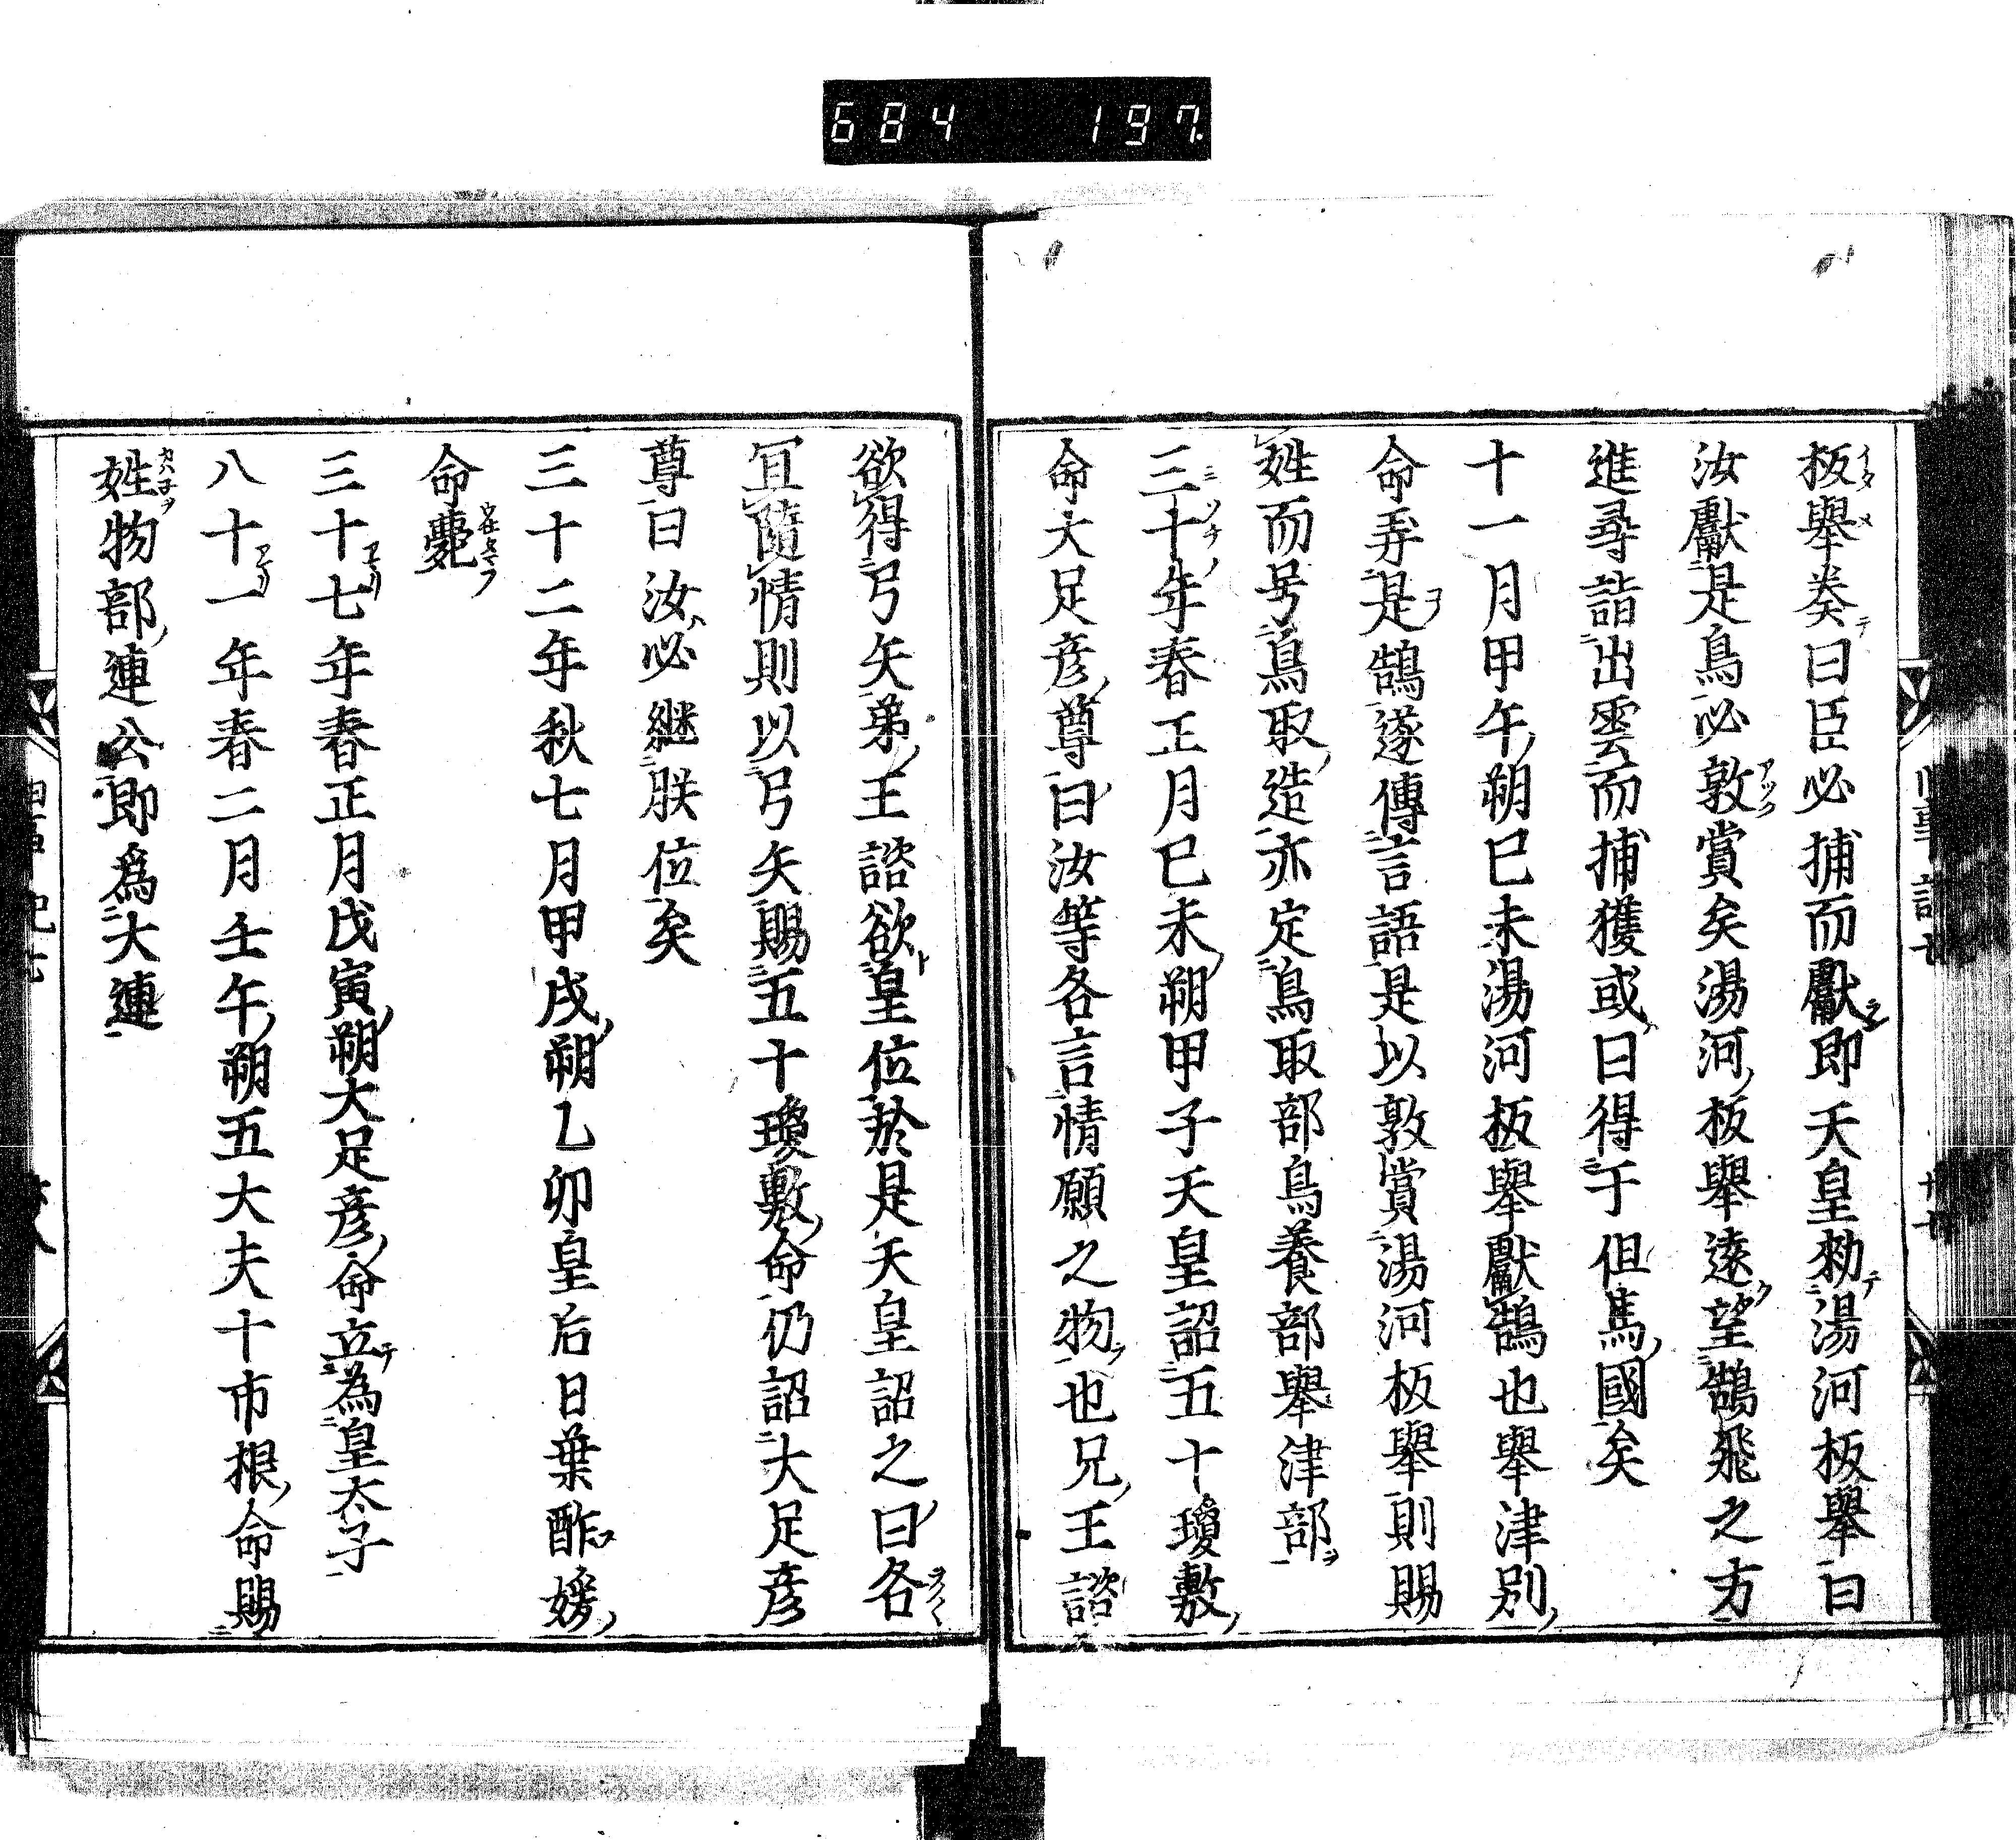 684 197
板舉奏曰臣必捕而獻即天皇勑湯河板舉曰
汝獻是鳥必敦賞矣湯河板舉遠望鵠飛之方
進尋詣出雲而捕獲或曰得于但馬國矣
十一月甲午朔巳未湯河板舉獻鵠也舉津別
命弄是鵠遂傳言語是以敦賞湯河板舉則賜
姓而号鳥取造亦定鳥取部鳥養部舉津部
三十年春正月巳未朔甲子天皇詔五十瓊敷
命大足彦尊曰汝等各言情願之物也兄王諮
欲得弓矢弟王諮欲皇位於是天皇詔之曰各
冝隨情則以弓矢賜五十瓊敷命仍詔大足彦
尊曰汝必継朕位矣
三十二年秋七月甲戌朔乙卯皇后日葉酢媛
命薨
三十七年春正月戊寅朔大足彦命立為皇太子
八十一年春二月壬午朔五大夫十市根命賜
姓物部連公即為大連